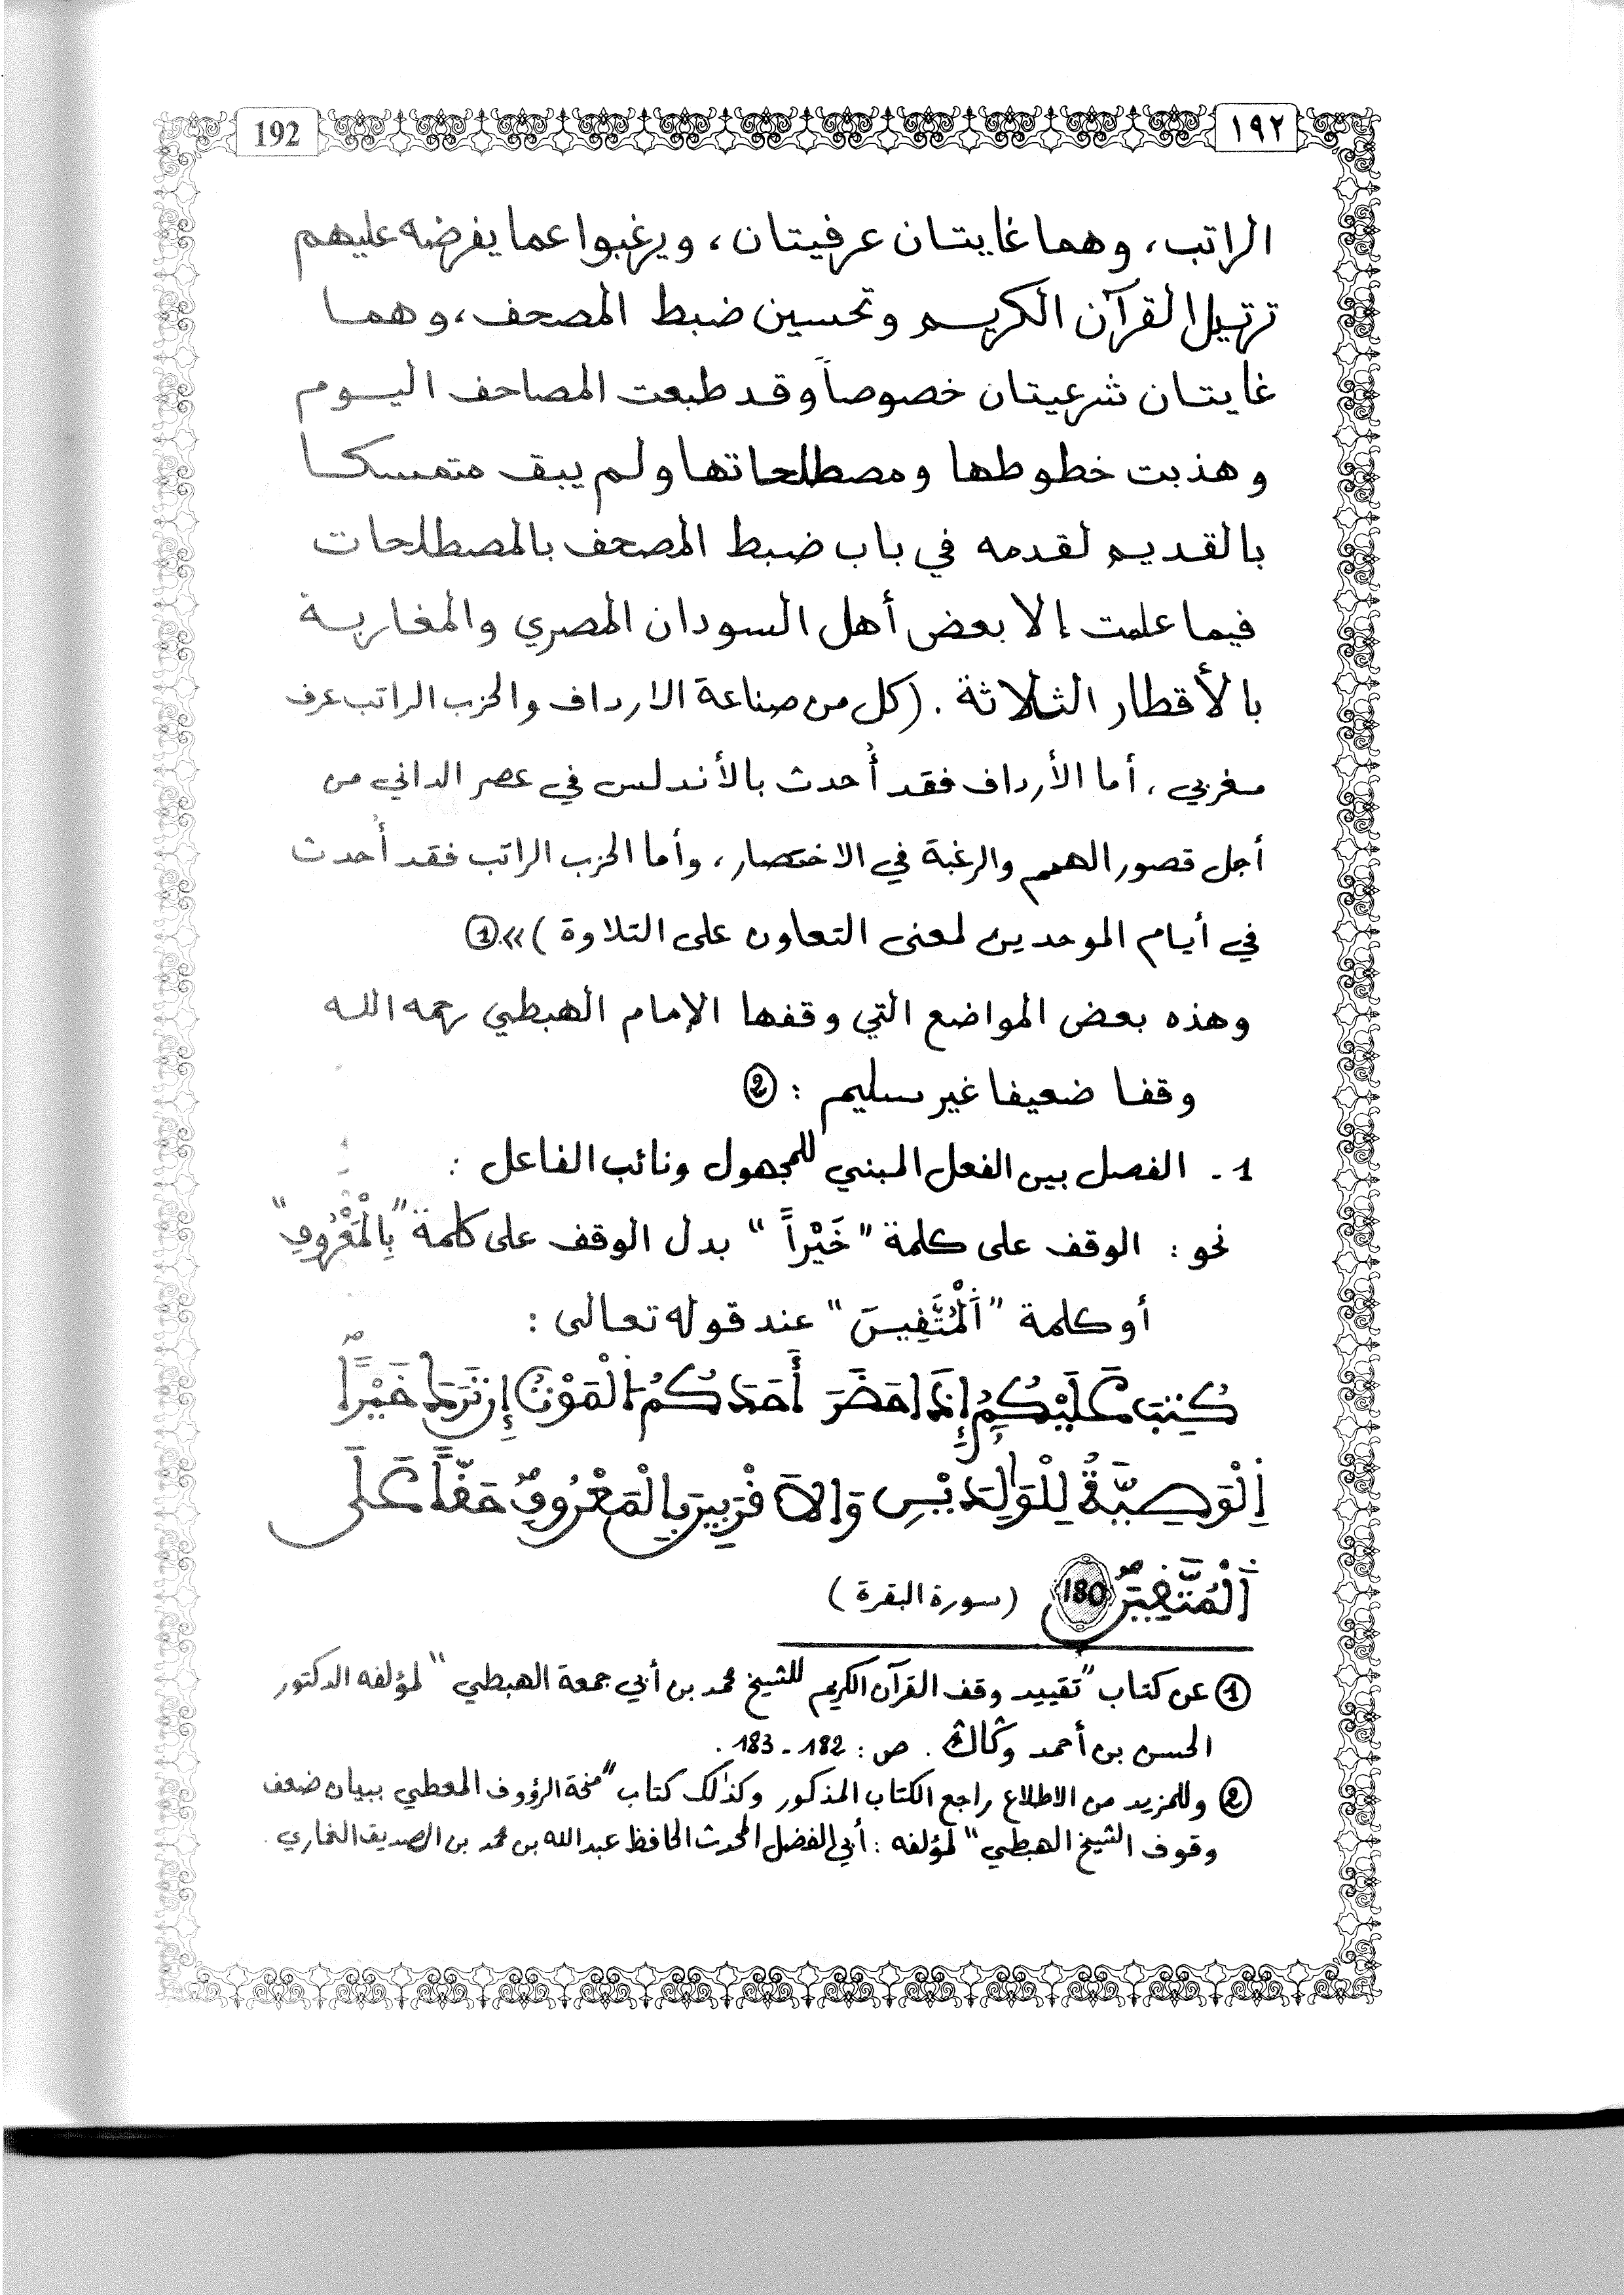 192 ١٩٢
الراتب، وهما غايتان عرفيتان، ويرغبوا عما يفرضه عليهم
ترتيل القرآن الكريم وتحسين ضبط المصحف، وهما
غايتان شرعيتان خصوصاً وقد طبعت المصاحف اليوم
وهذبت خطوطها ومصطلحاتها ولم يبق متمسكا
بالقديم لقدمه في باب ضبط المصحف بالمصطلحات
فيما علمت إلا بعض أهل السودان المصري والمغاربة
بالأقطار الثلاثة. (كل من صناعة الارداف والحزب الراتب عرف
مغربي، أما الأرداف فقد أُحدث بالأندلس في عصر الداني من
أجل قصور الهمم والرغبة في الاختصار، وأما الحزب الراتب فقد أُحدث
في أيام الموحدين لمعنى التعاون على التلاوة)». ①
وهذه بعض المواضع التي وقفها الإمام الهبطي رحمه الله
وقفا ضعيفا غير سليم : ②
1 - الفصل بين الفعل المبني للمجهول ونائب الفاعل :
نحو : الوقف على كلمة "خَيْراً" بدل الوقف على كلمة "بِالْمَعْرُوفِ"
أو كلمة "اَلْمُتَّفِينَ" عند قوله تعالى :
كُتِبَ عَلَيْكُمُ إِذَا حَضَرَ أَحَدَكُمُ اَلْمَوْتُ إِن تَرَكَ خَيْراً
اِلْوَصِيَّةُ لِلْوَٰلِدَيْنِ وَالَاقْرَبِينَ بِالْمَعْرُوفِ حَفّاً عَلَى
اَلْمُتَّفِينَ 180 (سورة البقرة)
① عن كتاب "تقييد وقف القرآن الكريم للشيخ محمد بن أبي جمعة الهبطي" لمؤلفه الدكتور
الحسن بن أحمد وݣاݣ. ص : 182 - 183.
② وللمزيد من الاطلاع راجع الكتاب المذكور وكذلك كتاب "منحة الرؤوف المعطي ببيان ضعف
وقوف الشيخ الهبطي" لمؤلفه : أبي الفضل المحدث الحافظ عبد الله بن محمد بن الصديق الغماري.